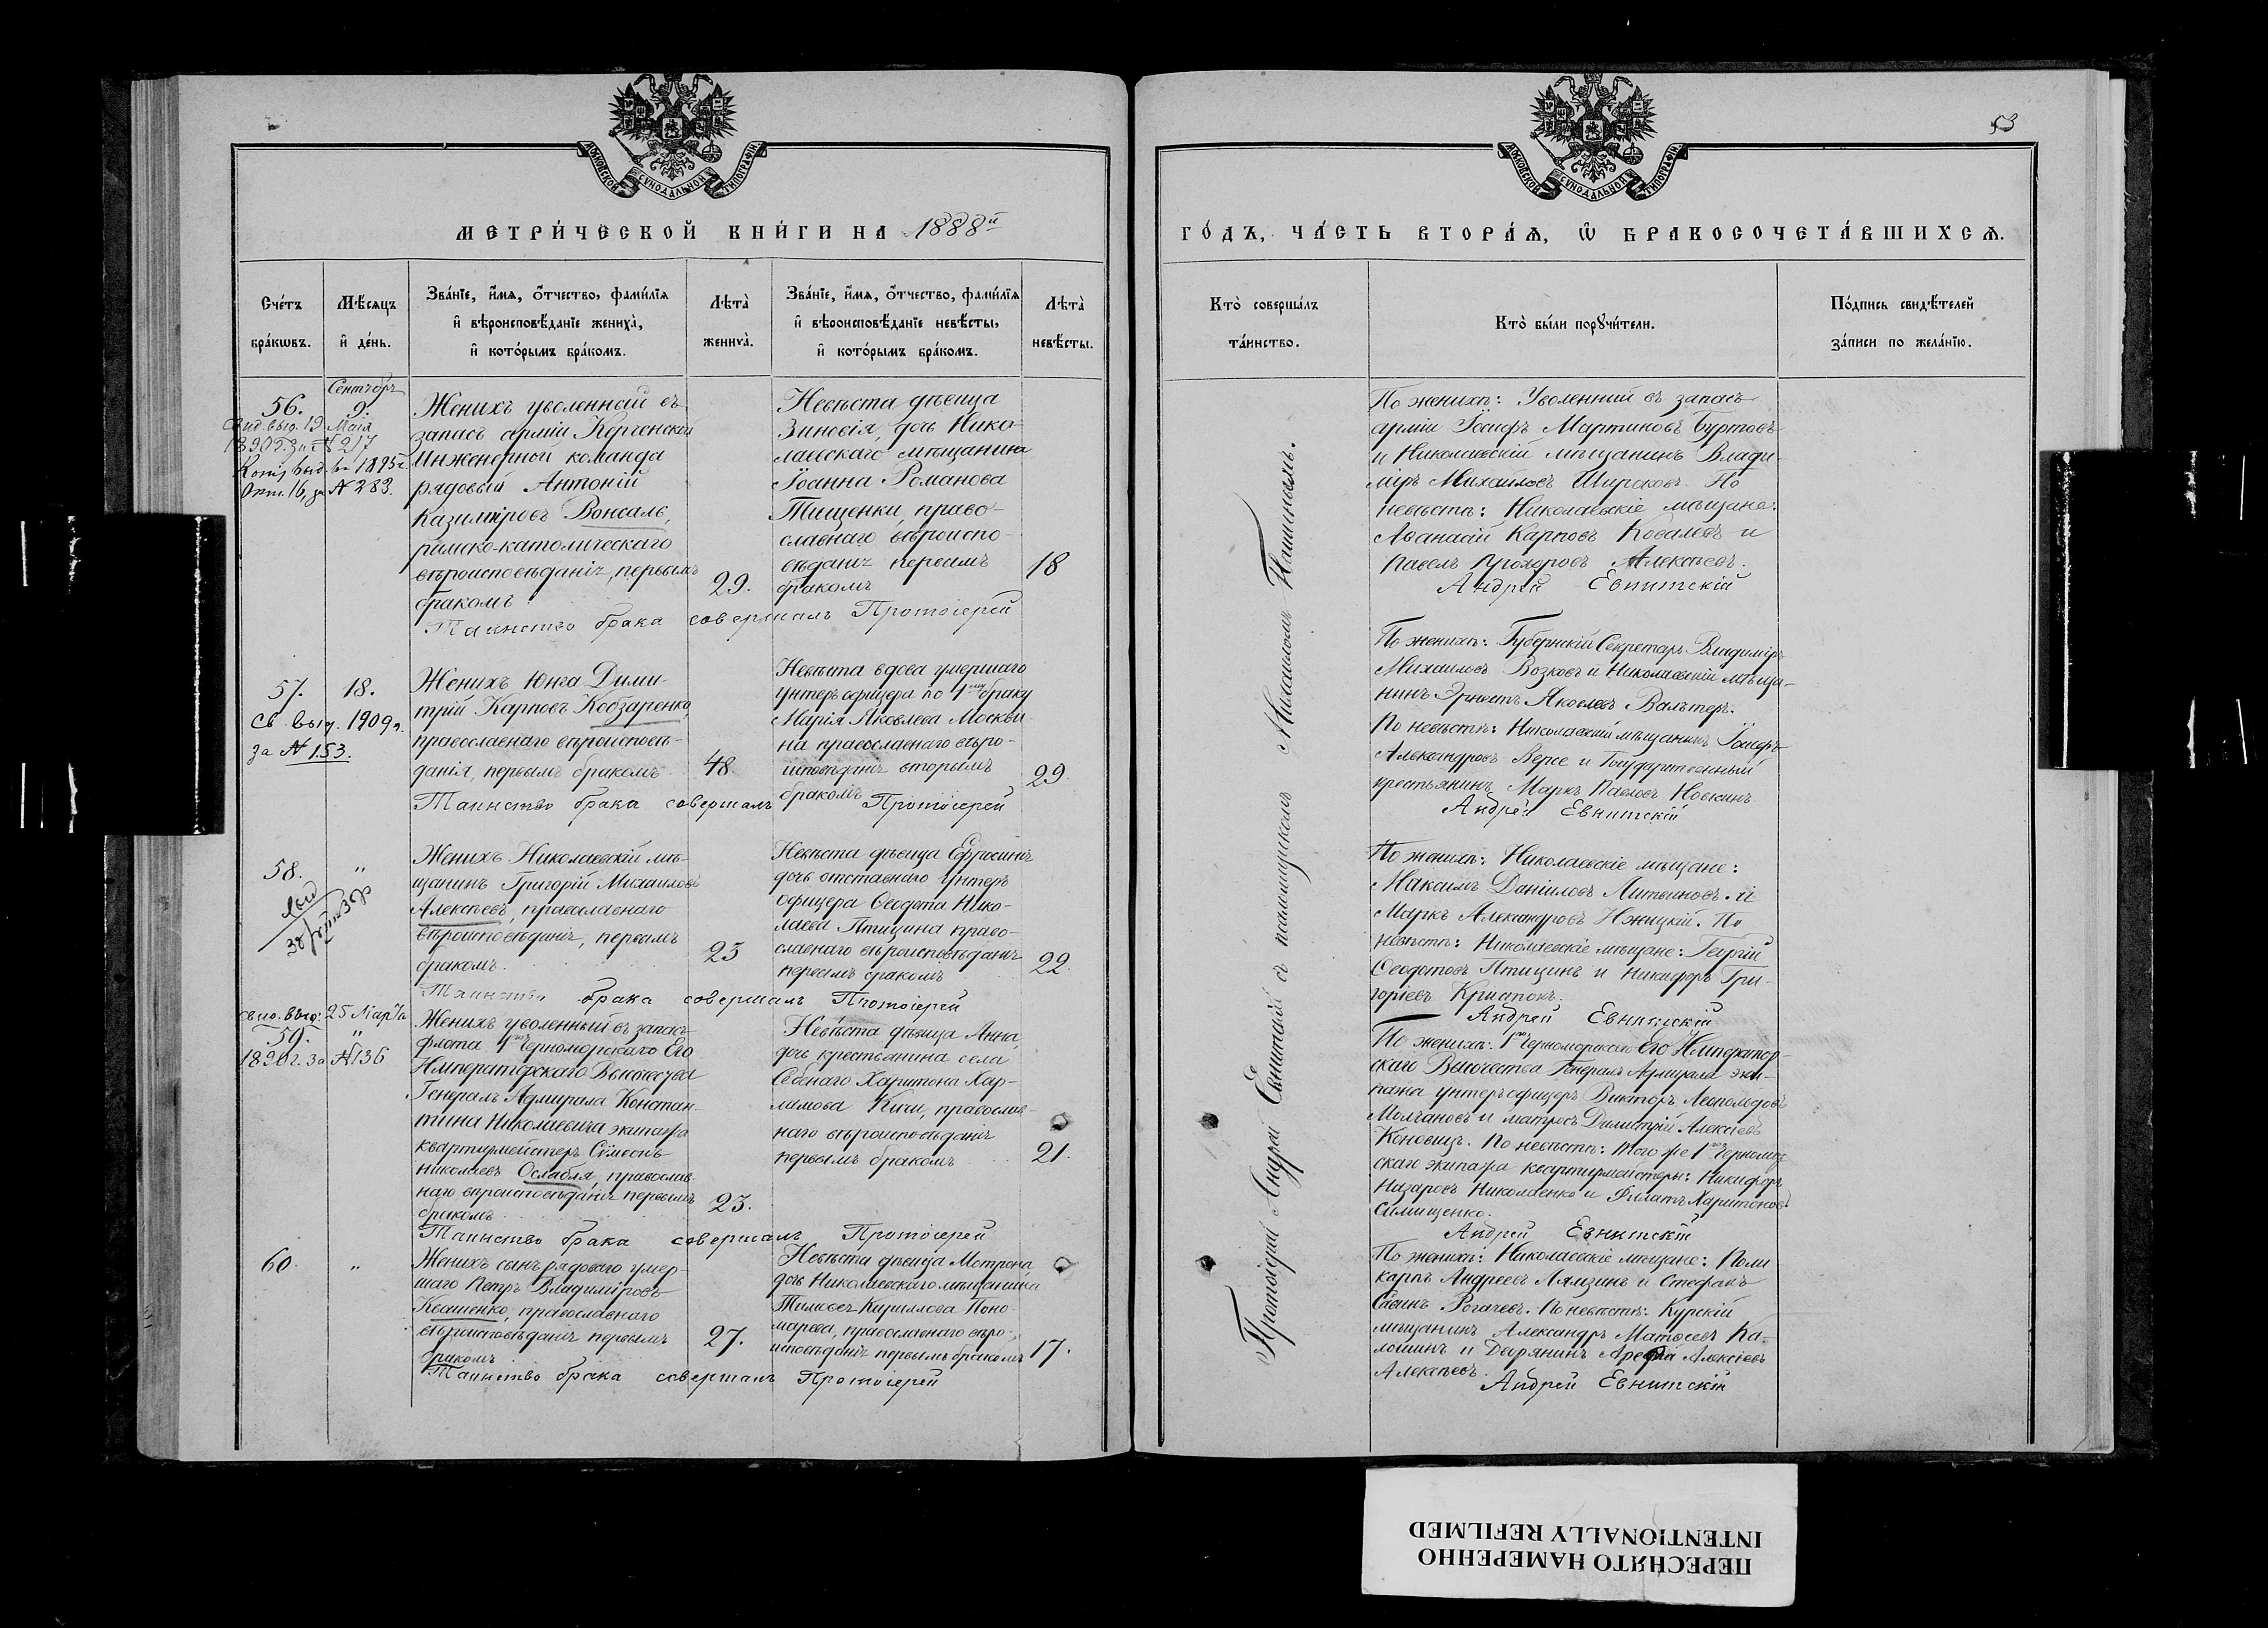 МОСКОВСКОЙ СѴНОДАЛЬНОЙ ТИПОГРАФІИ
МЕТРИ́ЧЕСКОЙ КНИ́ГИ НА 1888й
Сче́тъ бра́кѡвъ.
Мѣ́сяцъ и҆ де́нь.
Зва́нїе, и҆́мѧ, ѻ҆́тчество, фами́лїѧ и҆ вѣроисповѣ́данїе жениха̀, и҆ кото́рымъ бра́комъ.
Лѣта̀ жениха̀.
Зва́нїе, и҆́мѧ, ѻ҆́тчество, фами́лїѧ и҆ вѣроисповѣ́данїе невѣ́сты, и҆ кото́рымъ бра́комъ.
Лѣта̀ невѣ́сты.
Сентябрь
56.
9.
Свид. выд. 19 Мая
1890 г. за № 217
выд. въ 1895 г.
Окт. 16, за № 283.
Женихъ уволенный въ
запасъ арміи Керченской
Инженерной команды
рядовый Антоній
Казиміровъ Вонсаль,
римско-католическаго
вѣроисповѣданія, первымъ
бракомъ
29.
Невѣста дѣвица
Зиновія, дочь Нико-
лаевскаго мѣщанина
Іоанна Романова
Тищенки, право-
славнаго вѣроиспо-
вѣданія первымъ
бракомъ
18
Таинство брака совершалъ Протоіерей
57.
18.
Св. выд. 1909 г.
за № 153.
Женихъ Юнга Дими-
трій Карповъ Кобзаренко,
православнаго вѣроисповѣ-
данія, первымъ бракомъ.
48
Невѣста вдова умершаго
унтеръ офицера по 1му браку
Марія Яковлева Москви
на православнаго вѣро-
исповѣданія вторымъ
бракомъ
29.
Таинство брака совершалъ Протоіерей
58.
"
Женихъ Николаевскій мѣ-
щанинъ Григорій Михаиловъ
Алексѣевъ, православнаго
вѣроисповѣданія, первымъ
бракомъ.
23
Невѣста дѣвица Евфросинія
дочь отставнаго унтеръ
офицера Ѳеодота Нико-
лаева Птицына право-
славнаго вѣроисповѣданія
первымъ бракомъ
22.
Таинство брака совершалъ Протоіерей
свид. выд. 25 Марта
59.
"
1890 г. за № 136
Женихъ уволенный въ запасъ
флота 1го Черноморскаго Его
Императорскаго Высочества
Генералъ Адмирала Констан-
тина Николаевича экипажа
квартирмейстеръ Сѵмеонъ
Николаевъ Ослабля, православ-
наго вѣроисповѣданія первымъ
бракомъ
23.
Невѣста дѣвица Анна
дочь крестьянина села
Харитона Хар-
ламова Кичи, православ-
наго вѣроисповѣданія
первымъ бракомъ
21.
Таинство брака совершалъ Протоіерей
60.
"
Женихъ сынъ рядоваго умер-
шаго Петръ Владиміровъ
Квашенко, православнаго
вѣроисповѣданія первымъ
бракомъ
27.
Невѣста дѣвица Мотрона
дочь Николаевскаго мѣщанина
Тимоѳея Кириллова Поно-
марева, православнаго вѣро-
исповѣданія первымъ бракомъ
17.
Таинство брака совершалъ Протоіерей
МОСКОВСКОЙ СѴНОДАЛЬНОЙ ТИПОГРАФІИ
53
ГО́ДЪ, ЧА́СТЬ ВТОРА́Ѧ, Ѽ БРАКОСОЧЕТА́ВШИХСѦ.
Кто̀ соверша́лъ та́инство.
Кто̀ бы́ли порꙋчи́тели.
По́дпись свидѣ́телей за́писи по жела́нїю.
Протоіерей Андрей Евнитскій съ псаломщикомъ Михаиломъ
По женихѣ: Уволенный въ запасъ
арміи Іосифъ Мартиновъ Буртовъ
и Николаевскій мѣщанинъ Влади-
міръ Михайловъ Широковъ. По
невѣстѣ: Николаевскіе мѣщане:
Аѳанасій Карповъ Ковалевъ и
Павелъ Прохоровъ Алексѣевъ.
Андрей Евнитскій
По женихѣ: Губернскій Секретарь Владиміръ
Михайловъ Возковъ и Николаевскій мѣща-
нинъ Эрнестъ Яковлевъ Вальтеръ.
По невѣстѣ: Николаевскій мѣщанинъ Іосифъ
Александровъ Верже и Государственный
крестьянинъ Маркъ Павловъ Новкинъ
Андрей Евнитскій
По женихѣ: Николаевскіе мѣщане:
Максимъ Даніиловъ Литвиновъ и
Маркъ Александровъ Нжицкій. По
невѣстѣ: Николаевскіе мѣщане: Георгій
Ѳеодотовъ Птицынъ и Никифоръ Гри-
горіевъ Кристокъ.
Андрей Евнитскій
По женихѣ: 1го Черноморскаго Его Император-
скаго Высочества Генералъ Адмирала эки-
пажа унтеръ офицеръ Викторъ Леопольдовъ
Молчановъ и матросъ Димитрій Алексѣевъ
Коновицъ. По невѣстѣ: того же 1го Черномор
скаго экипажа квартирмейстеры: Никифоръ
Назаровъ Николаенко и Филатъ Харитоновъ
Симищенко.
Андрей Евнитскій
По женихѣ: Николаевскіе мѣщане: Поли
карпъ Андреевъ Лямзинъ и Стефанъ
Савинъ Рогачевъ. По невѣстѣ: Курскій
мѣщанинъ Александръ Матвѣевъ Ка-
лошинъ и Дворянинъ Алексѣевъ
Алексѣевъ.
Андрей Евнитскій
ПЕРЕСНЯТО НАМЕРЕННО
INTENTIONALLY REFILMED